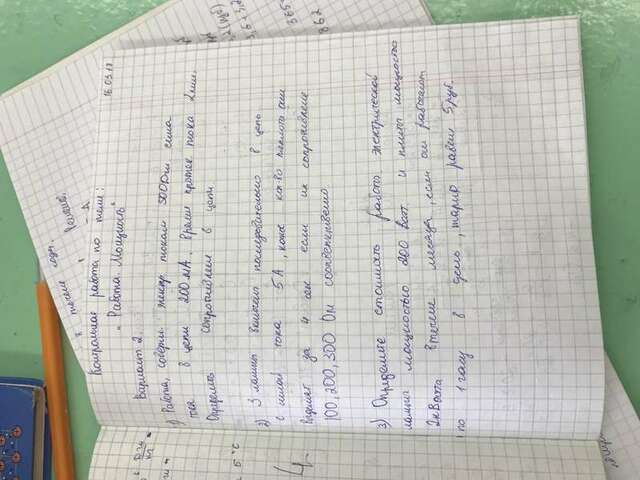 в течение года.
Решение.
16.03.18
Контрольная работа по теме:
"Работа. Мощность"
Вариант 2.
1) Работа, соверш. электр. током 500Дж сила
тока в цепи 200 мА, время проток тока 2 мин.
Определить сопротивлен в цепи.
2) 3 лампы включены последовательно в цепь
с силой тока 5 А, какое кол-во теплоты они
выделят за 4 сек если их сопротивление
100, 200, 300 Ом соответственно.
3) Определите стоимость работы электрической
лампы мощностью 200 ватт и плиты мощностью
2 кВатта в течение месяца, если они работают
по 1 часу в день, тариф равен 5 руб.
Дж
кг
5 °C
4